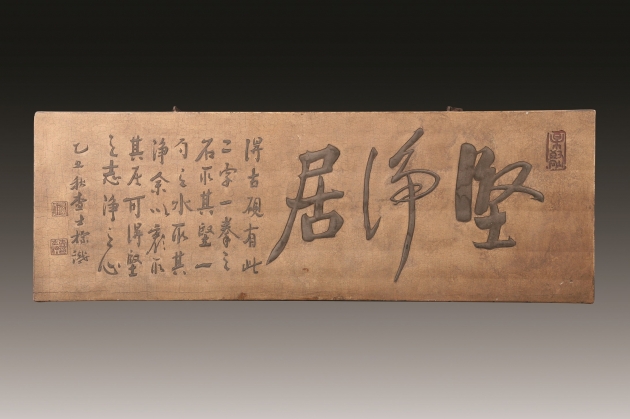 堅淨居
得古硯有此
二字一拳之
石取其堅一
勺之水取其
淨余以顏所
其居可得堅
之志淨之心
乙丑秋查士標識